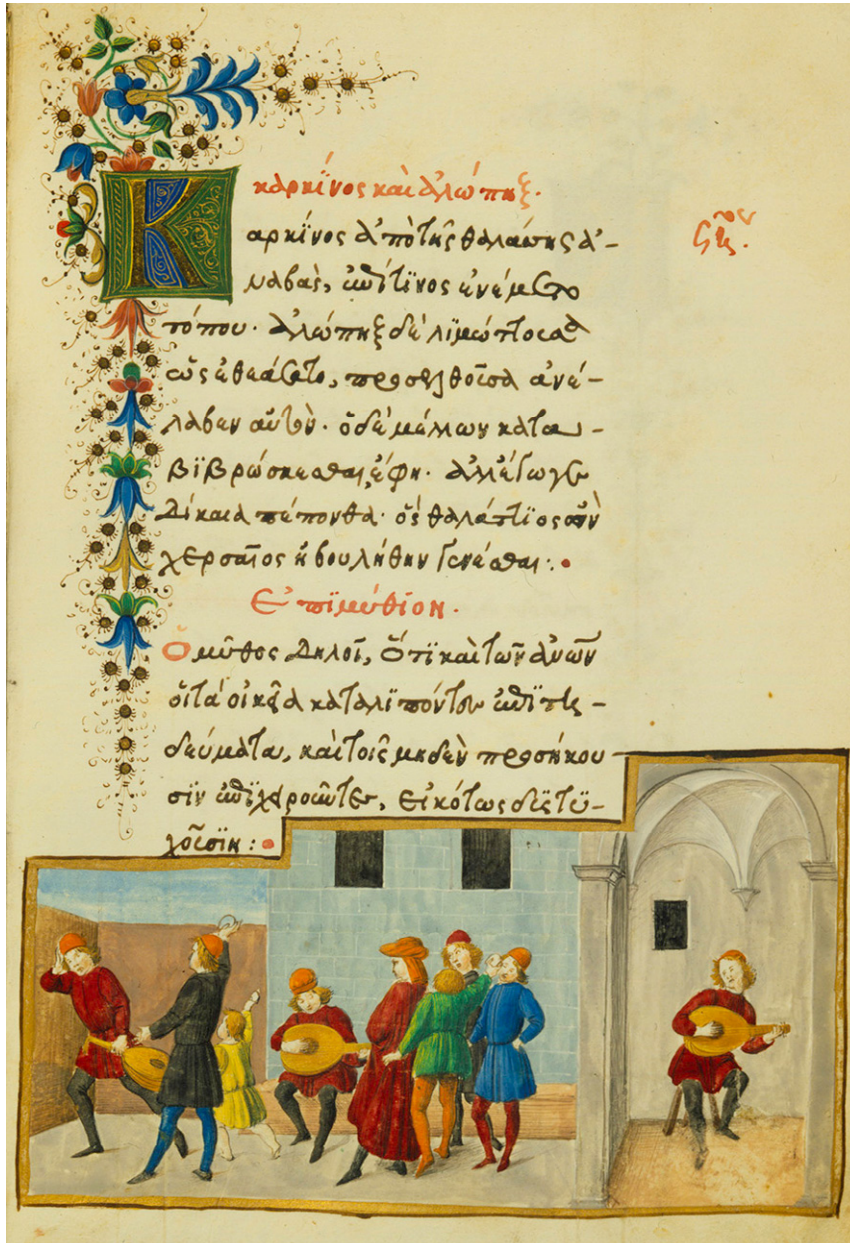 καρκίνος καὶ ἀλώπηξ.
Καρκίνος ἀπὸ τῆς θαλάσσης ἀ-
ναβὰς, ἐπί τινος ἐνέμετο
τόπου. ἀλώπηξ δὲ λιμώττουσα
ὡς ἐθεάσατο, προσελθοῦσα ἀνέ-
λαβεν αὐτὸν. ὁ δὲ μέλλων κατα-
βιβρώσκεσθαι, ἔφη. ἀλλ' ἔγωγε
δίκαια πέπονθα. ὃς θαλάττιος ὢν
χερσαῖος ἠβουλήθην γενέσθαι:.
Ἐπιμύθιον.
Ὁ μῦθος δηλοῖ, ὅτι καὶ τῶν ἀνῶν
οἱ τὰ οἰκεῖα καταλιπόντες ἐπιτη-
δεύματα, καὶ τοῖς μηδὲν προσήκου-
σιν ἐπιχειροῦντες, εἰκότως δυστυ-
χοῦσιν: